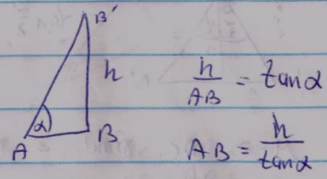 B'
h
α
A
B
h/AB = tanα
AB = h/tanα